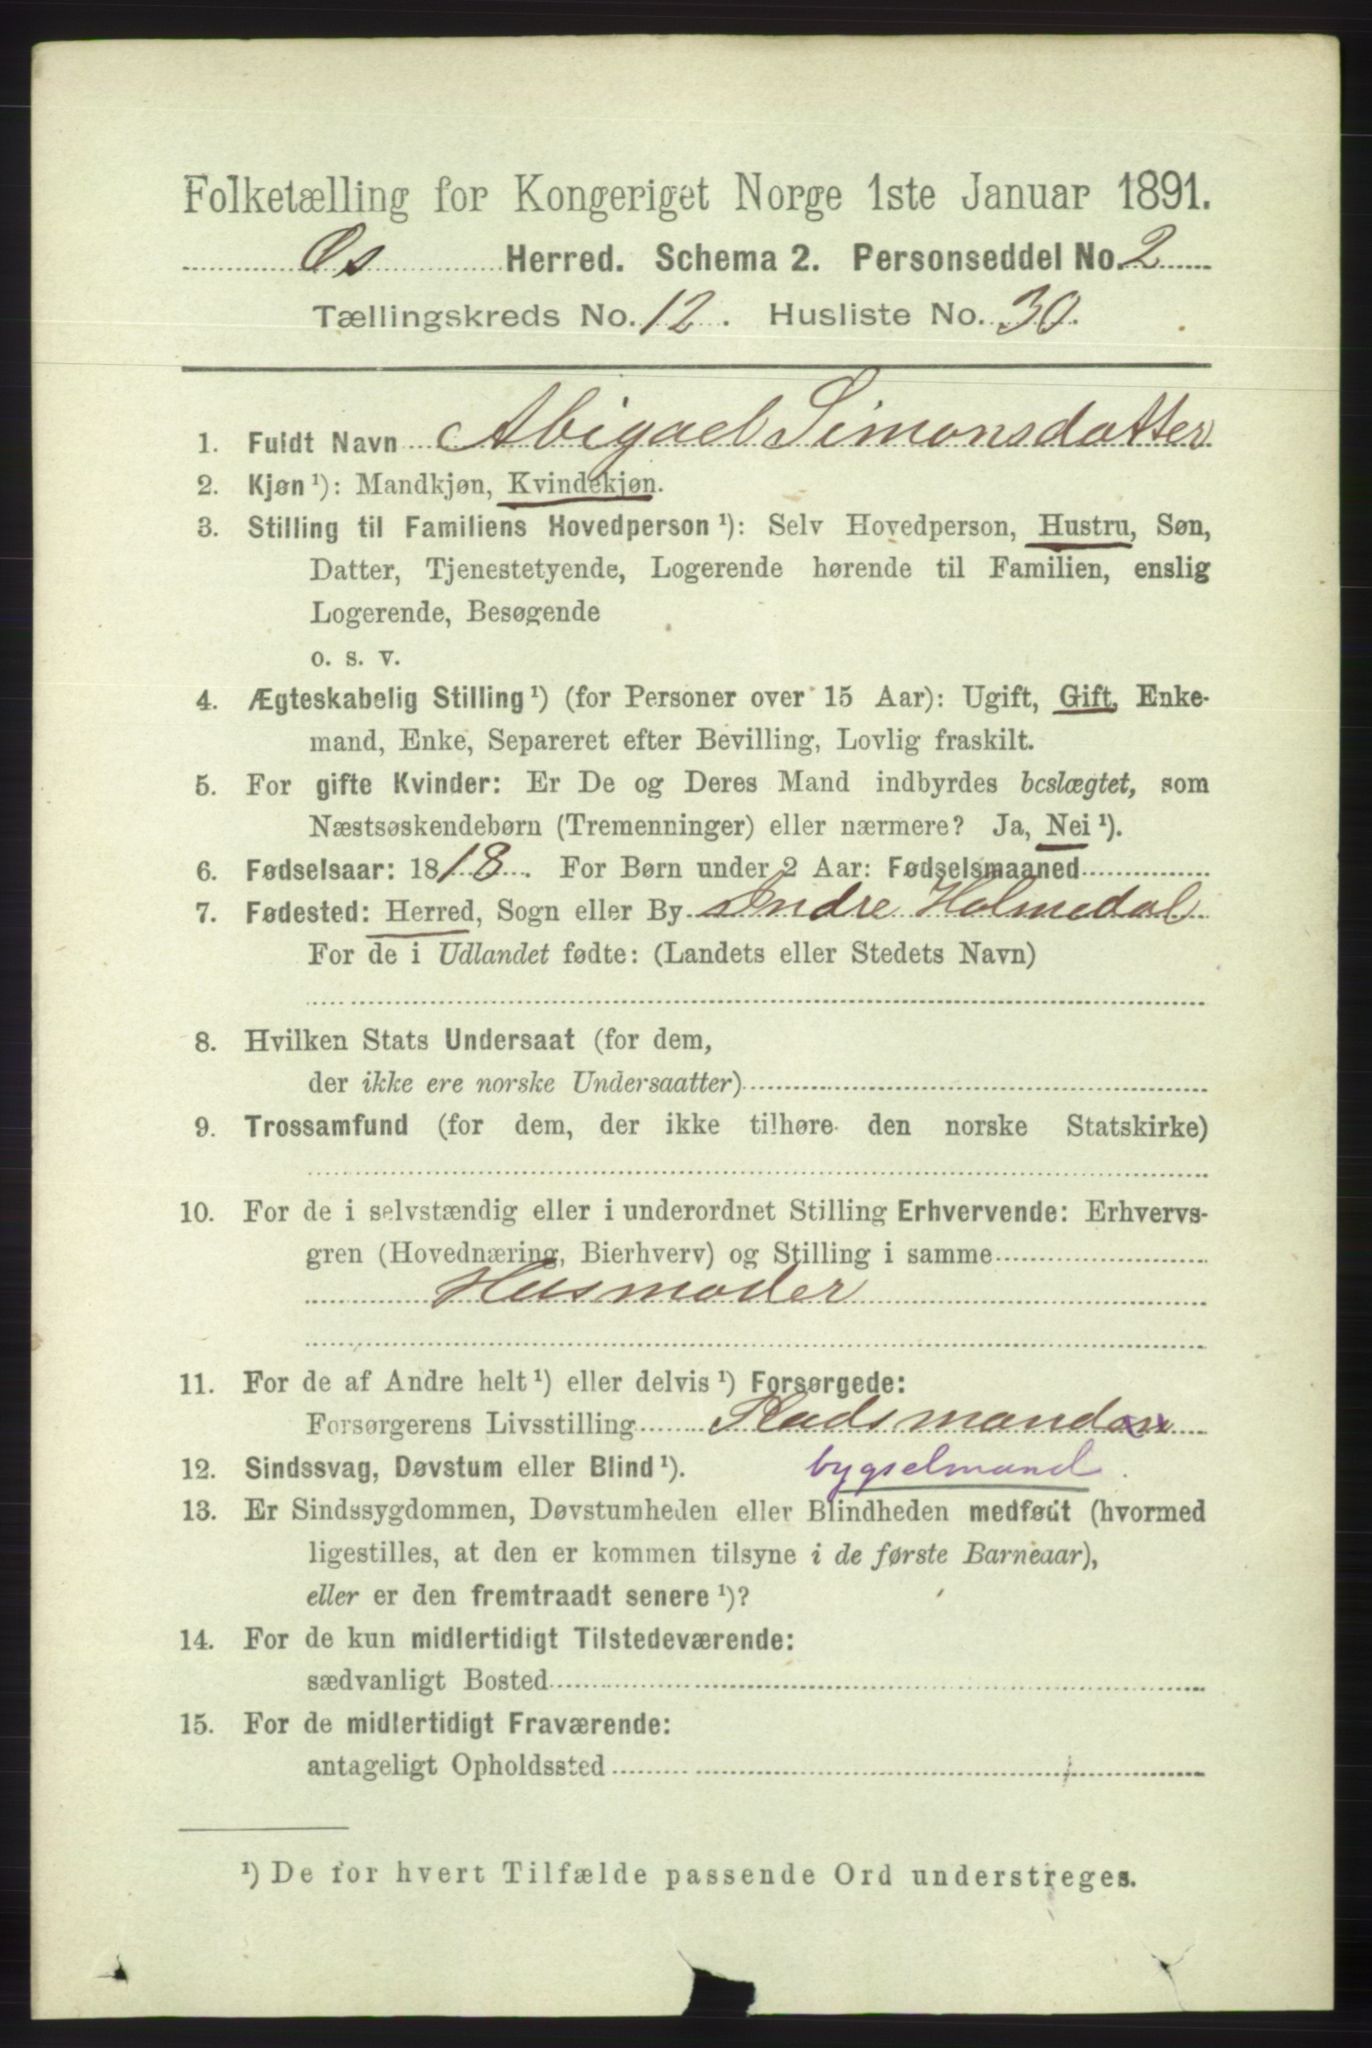 Folketælling for Kongeriget Norge 1ste Januar 1891.
Os Herred. Schema 2. Personseddel No. 2
Tællingskreds No. 12. Husliste No. 30.
1. Fuldt Navn Abigael Simonsdatter
2. Kjøn ¹): Mandkjøn, Kvindekjøn.
3. Stilling til Familiens Hovedperson ¹): Selv Hovedperson, Hustru, Søn,
Datter, Tjenestetyende, Logerende hørende til Familien, enslig
Logerende, Besøgende
o. s. v.
4. Ægteskabelig Stilling ¹) (for Personer over 15 Aar): Ugift, Gift, Enke-
mand, Enke, Separeret efter Bevilling, Lovlig fraskilt.
5. For gifte Kvinder: Er De og Deres Mand indbyrdes beslægtet, som
Næstsøskendebørn (Tremenninger) eller nærmere? Ja, Nei ¹).
6. Fødselsaar: 1818. For Børn under 2 Aar: Fødselsmaaned
7. Fødested: Herred, Sogn eller By Indre Holmedal
For de i Udlandet fødte: (Landets eller Stedets Navn)
8. Hvilken Stats Undersaat (for dem,
der ikke ere norske Undersaatter)
9. Trossamfund (for dem, der ikke tilhøre den norske Statskirke)
10. For de i selvstændig eller i underordnet Stilling Erhvervende: Erhvervs-
gren (Hovednæring, Bierhverv) og Stilling i samme
Husmoder
11. For de af Andre helt ¹) eller delvis ¹) Forsørgede:
Forsørgerens Livsstilling Pladsmanden
12. Sindssvag, Døvstum eller Blind ¹). bygselmand.
13. Er Sindssygdommen, Døvstumheden eller Blindheden medfødt (hvormed
ligestilles, at den er kommen tilsyne i de første Barneaar),
eller er den fremtraadt senere ¹)?
14. For de kun midlertidigt Tilstedeværende:
sædvanligt Bosted
15. For de midlertidigt Fraværende:
antageligt Opholdssted
¹) De for hvert Tilfælde passende Ord understreges.